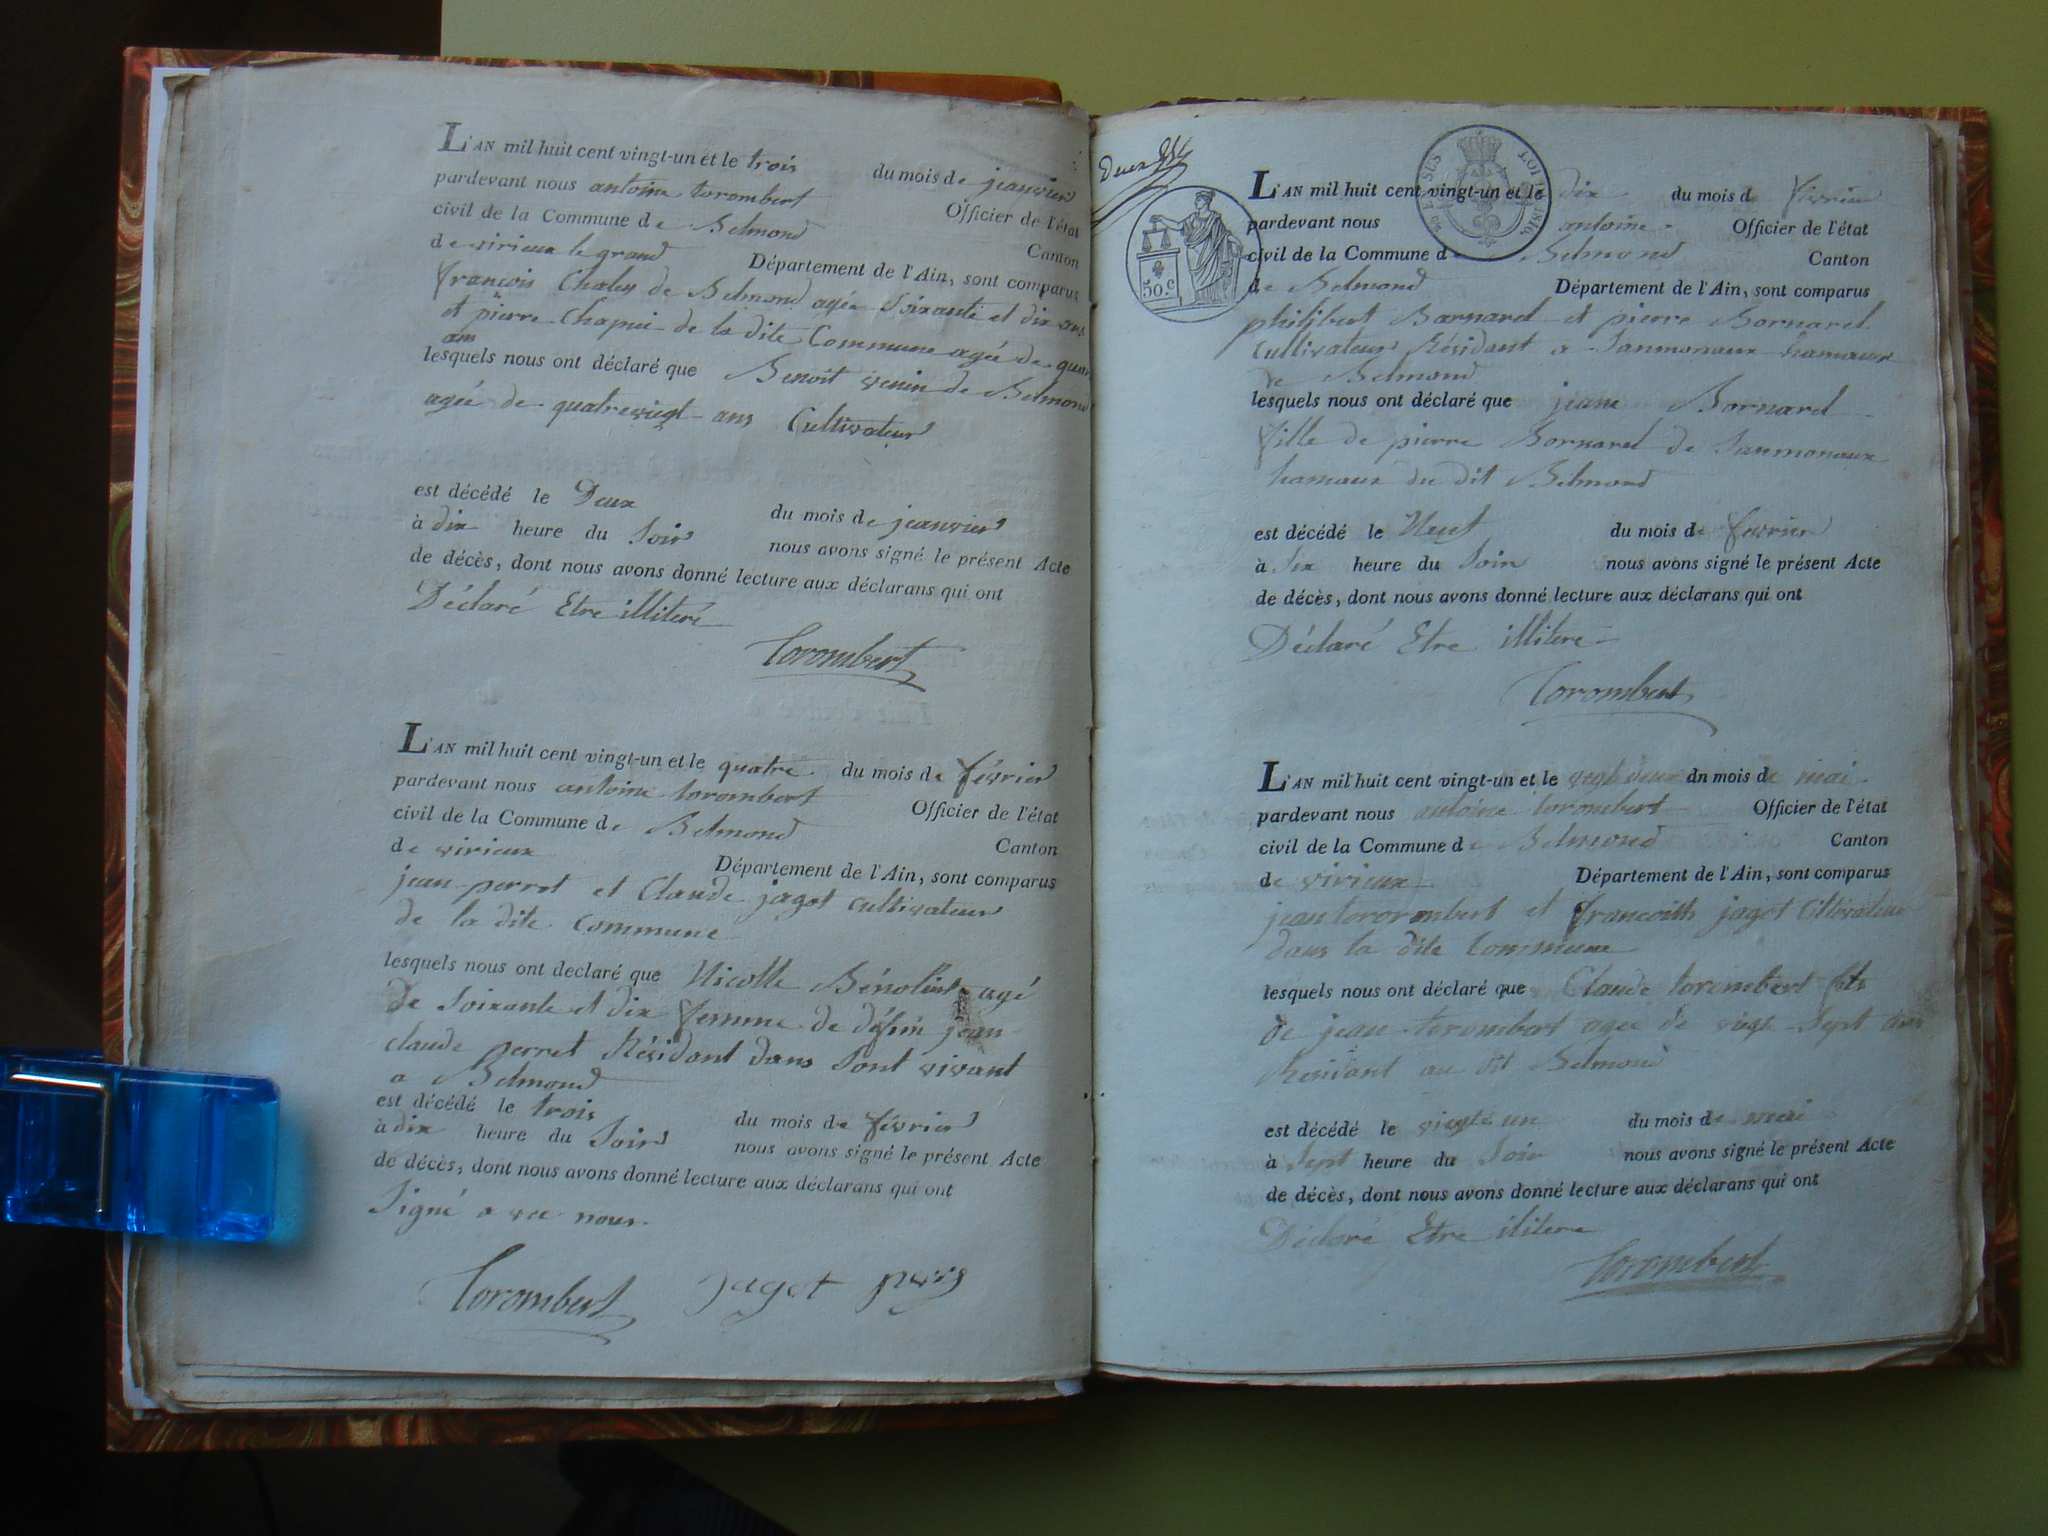 L'AN mil huit cent vingt-un et le trois du mois de jeanvier
pardevant nous antoine torombert Officier de l'état
civil de la Commune de Belmond Canton
de virieux le grand Département de l'Ain, sont comparus
françois Chaley de Belmond agée Soixante et dix ans
et pierre Chapui de la dite Commune agée de quar
ans
lesquels nous ont déclaré que Benoit venin de Belmond
agée de quatrevingt ans Cultivateur
est décédé le Deux du mois de jeanvier
à dix heure du Soir nous avons signé le présent Acte
de décès, dont nous avons donné lecture aux déclarans qui ont
Déclaré Etre illiteré
Torombert
L'AN mil huit cent vingt-un et le quatre du mois de février
pardevant nous antoine torombert Officier de l'état
civil de la Commune de Belmond Canton
de virieux Département de l'Ain, sont comparus
jean perret et Claude jagot cultivateur
de la dite Commune
lesquels nous ont declaré que Nicolle agé
de Soixante et dix femme de défin jean
claude perret Résidant dans Sont vivant
a Belmond
est décédé le trois du mois de février
à dix heure du Soir nous avons signé le présent Acte
de décès, dont nous avons donné lecture aux déclarans qui ont
Signé avec nous
Torombert jagot
50.c
L'AN mil huit cent vingt-un et le dix du mois de février
pardevant nous antoine Officier de l'état
civil de la Commune de Belmond Canton
de Belmond Département de l'Ain, sont comparus
philibert Bornarel et pierre Bornarel
Cultivateur Résidant a Sanmonaux hamaux
de Belmond
lesquels nous ont déclaré que jeane Bornarel
fille de pierre Bornarel de Sanmonaux
hamaux du dit Belmond
est décédé le Neuf du mois de fevrier
à Six heure du Soir nous avons signé le présent Acte
de décès, dont nous avons donné lecture aux déclarans qui ont
Déclaré Etre illiteré
Torombert
L'AN mil huit cent vingt-un et le vegt deux dn mois de mai
pardevant nous antoine torombert Officier de l'état
civil de la Commune de Belmond Canton
de virieux Département de l'Ain, sont comparus
jean torormbert et jagot
dans la dite Commune
lesquels nous ont déclaré que Claude torombert fils
de jean torombert agée de vingt Sept ans
Résidant au dit Belmond
est décédé le vingte un du mois de mai
à Sept heure du Soir nous avons signé le présent Acte
de décès, dont nous avons donné lecture aux déclarans qui ont
Déclaré Etre ilitere
Torombert